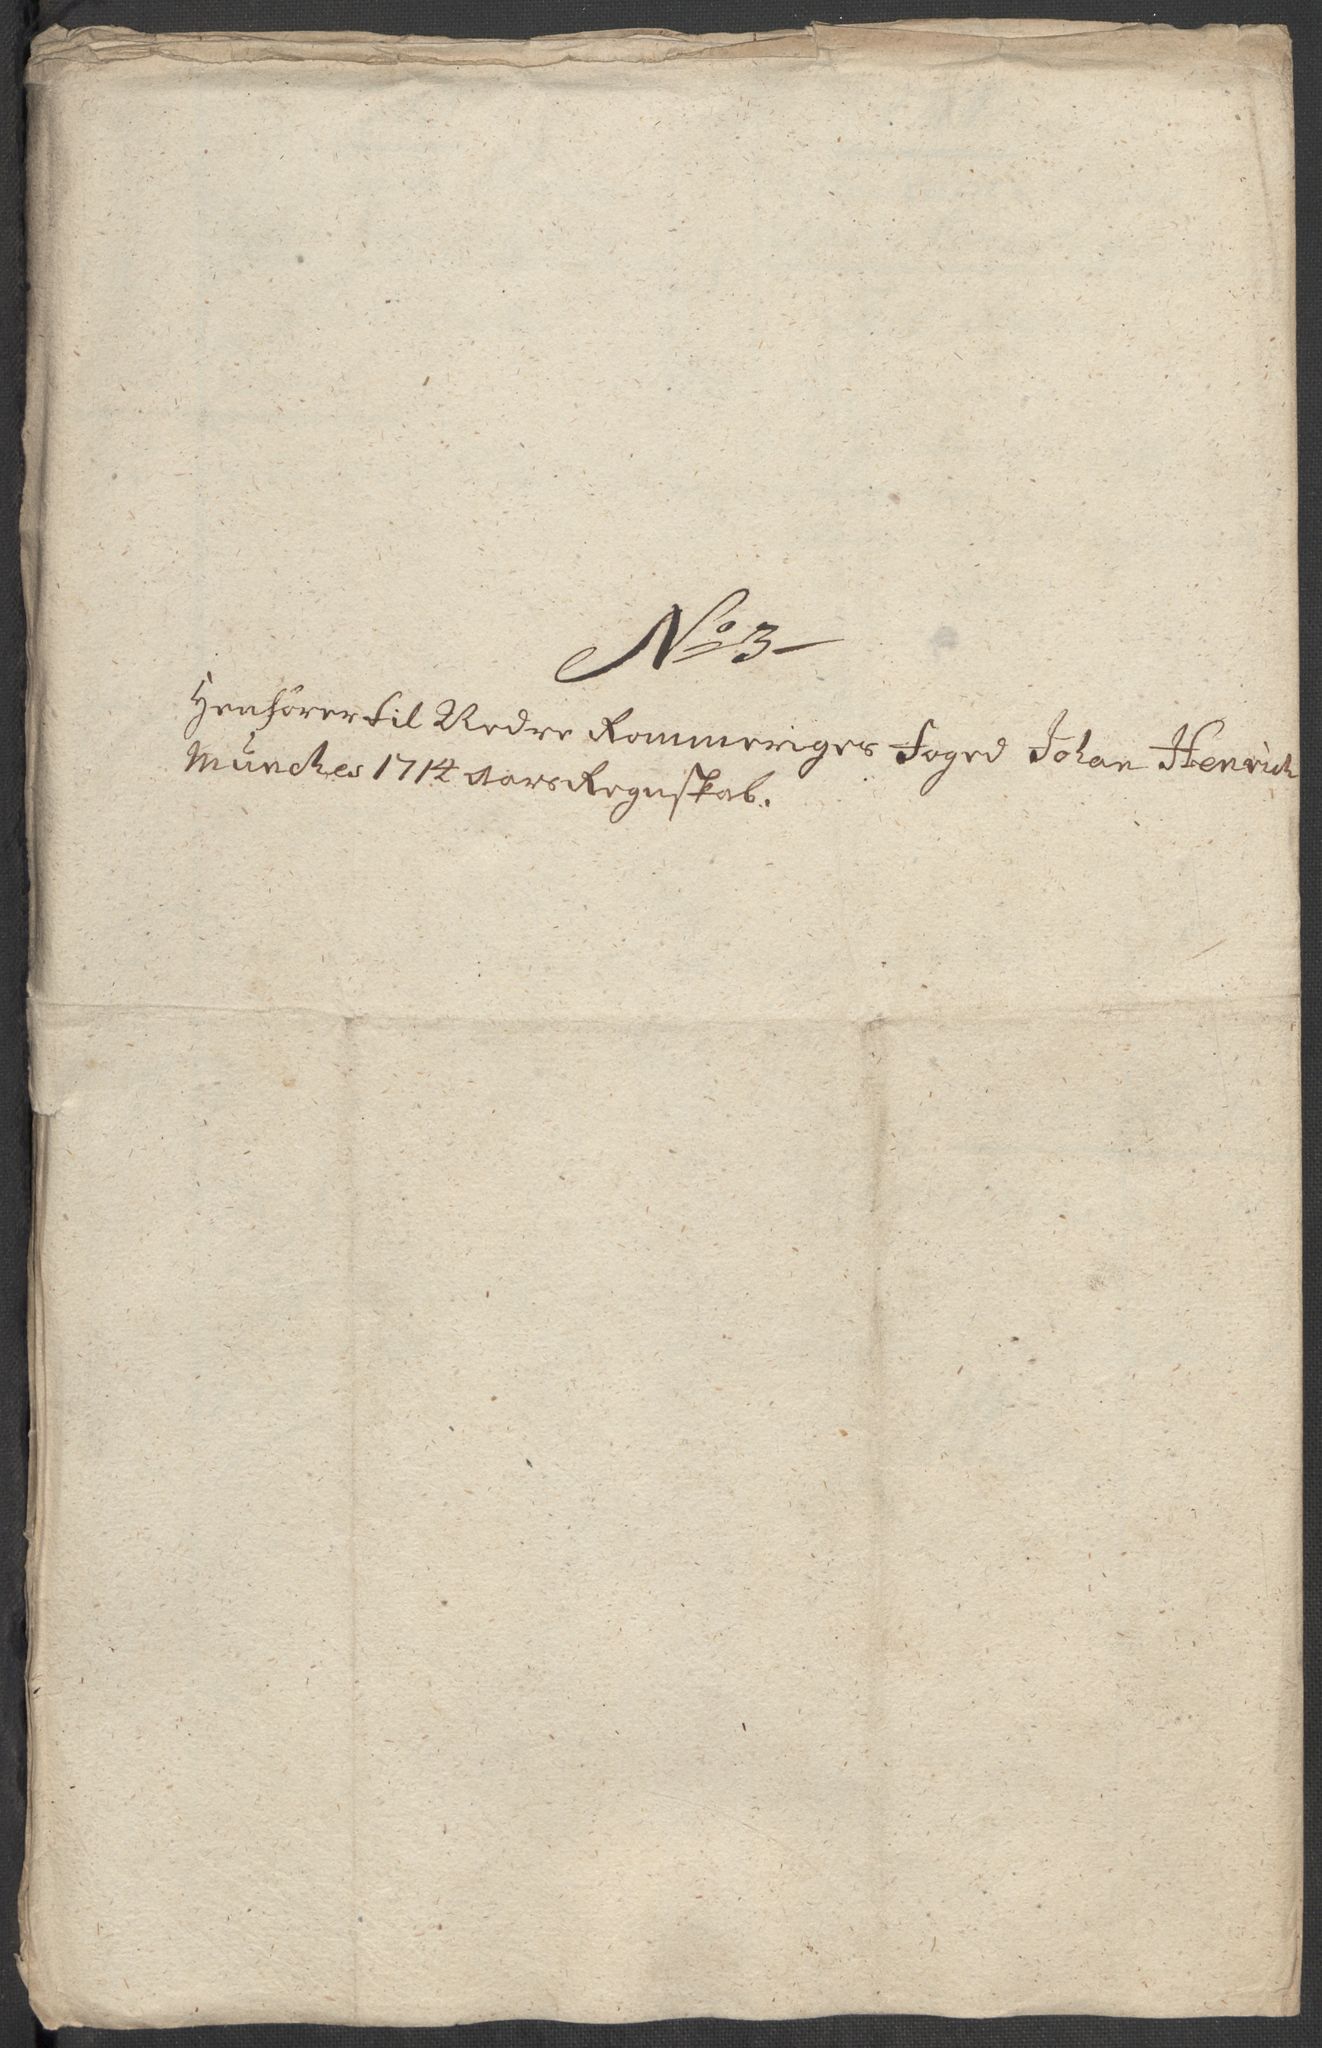 No 3
Henhörer til Nedre Rommeriges Foged Johan Henrich
Münches 1714 Aars Regnskab.